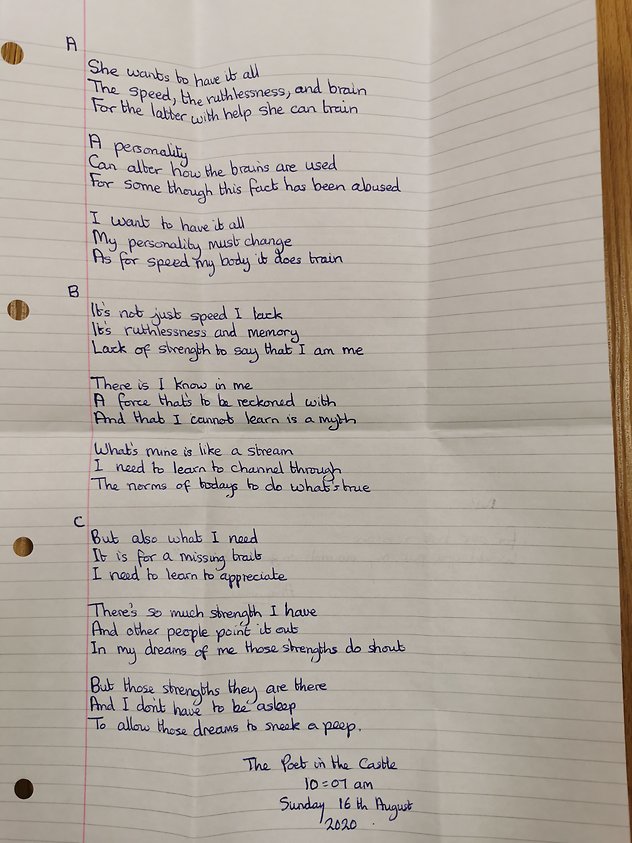 A
She wants to have it all
The speed, the ruthlessness, and brain
For the latter with help she can train
A personality
Can alter how the brains are used
For some though this fact has been abused
I want to have it all
My personality must change
As for speed my body it does train
B
It's not just speed I lack
It's ruthlessness and memory
Lack of strength to say that I am me
There is I know in me
A force that's to be reckoned with
And that I cannot learn is a myth
What's mine is like a stream
I need to learn to channel through
The norms of todays to do what's true
C
But also what I need
It is for a missing trait
I need to learn to appreciate
There's so much strength I have
And other people point it out
In my dreams of me those strengths do shout
But those strengths they are there
And I don't have to be asleep
To allow those dreams to sneek a peep.
The Poet in the Castle
10=07 am
Sunday 16th August
2020.